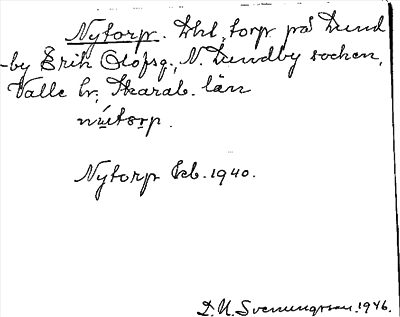 Nytorp. Dhl, torp på Lund
-by Erik Olofsg., N. Lundby socken,
Valle hr, Skarab. län
nýtorp.
Nytorp Ekb. 1940.
D.N. Svenungsson. 1946.